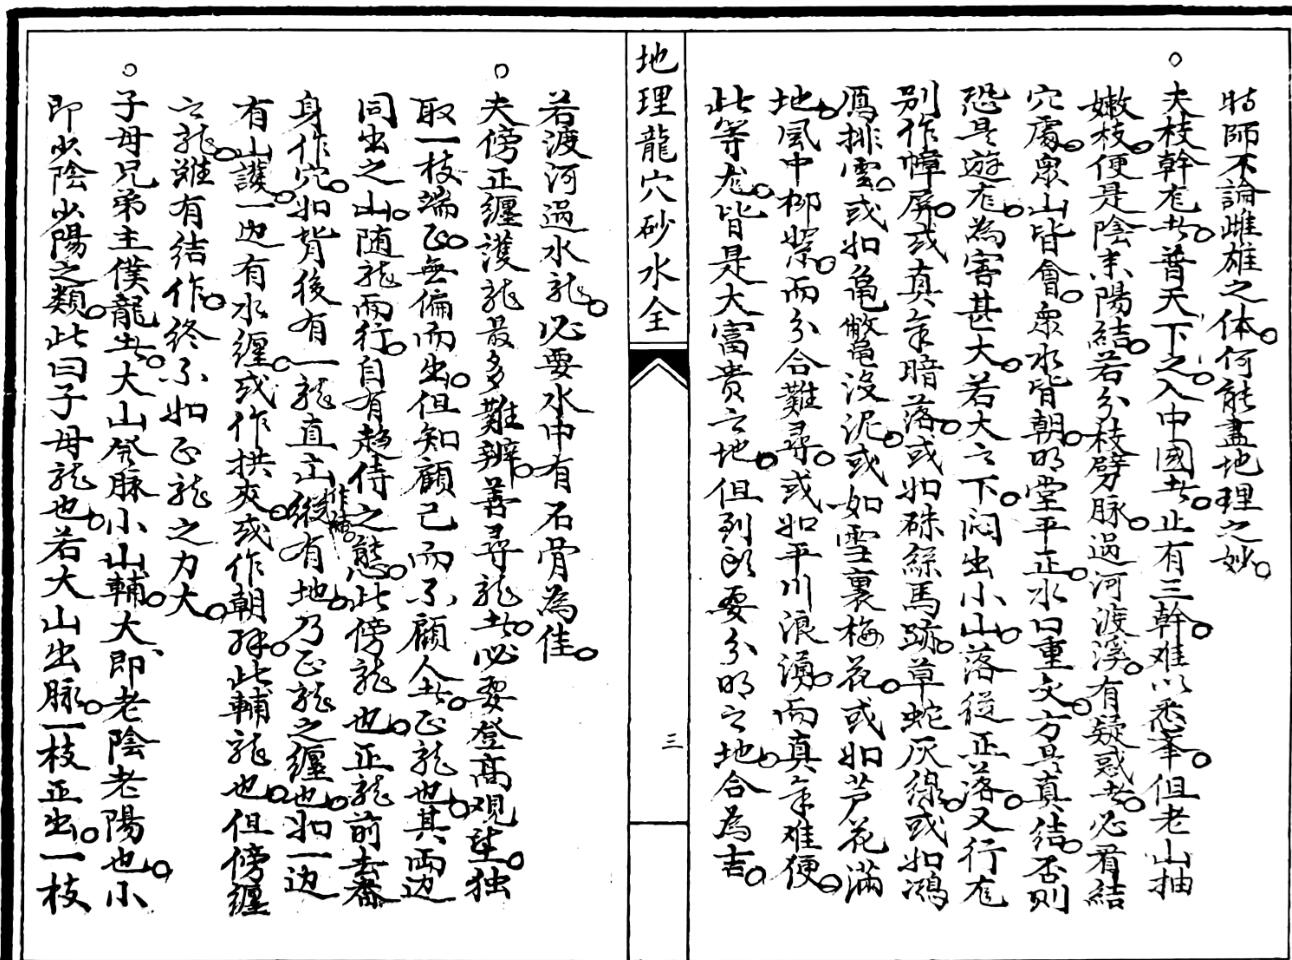 時師不論雌雄之体。何能盡地理之妙。
○夫枝幹龙者。普天下之。入中國者。止有三幹。难以悉筆。但老山抽
嫩枝。便是陰来陽結。若分枝劈脉。過河渡溪。有疑惑者。必看結
穴處。衆山皆會。衆水皆朝。明堂平正。水口重交。方是真結。否則
恐是遊龙。為害甚大。若大之下。闷出小山。落從正落。又行龙
别作幛屏。或真氣暗落。或如硃絲馬跡。草蛇灰線。或如鴻
鴈排雲。或如亀鱉沒泥。或如雪裏梅花。或如芦花滿
地。風中柳媃。而分合難尋。或如平川浪湧。而真氣难便。
此等龙。皆是大富貴之地。但到頭要分明之地。合為吉。
地理龍穴砂水全
三
若渡河過水龍。必要水中有石骨為佳。
○夫傍正纏護龍最多難辨。善尋龍者。必要登高观望。独
取一枝端正。無偏而出。但知顧己而不顧人者。正龍也。其両边
同出之山。随龍而行。自有趨侍之態。此傍龍也。正龍前去奮
身作穴。如背後有一龍直立縱有地。乃正龍之纏也。如一边
有山護。一边有水纏。或作拱夾。或作朝拜。此輔龍也。但傍纏
之龍。雖有結作。終不如正龍之力大。
○子母兄弟主僕龍者。大山發脉小山輔。大即老陰老陽也。小
即少陰少陽之類。此曰子母龍也。若大山出脉。一枝正出。一枝